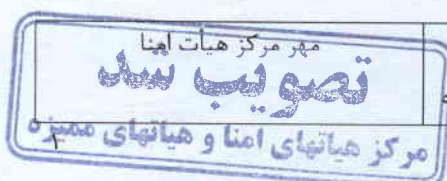 مهر مرکز هیأت امنا
تصویب شد
مرکز هیاتهای امنا و هیاتهای ممیزه
۱